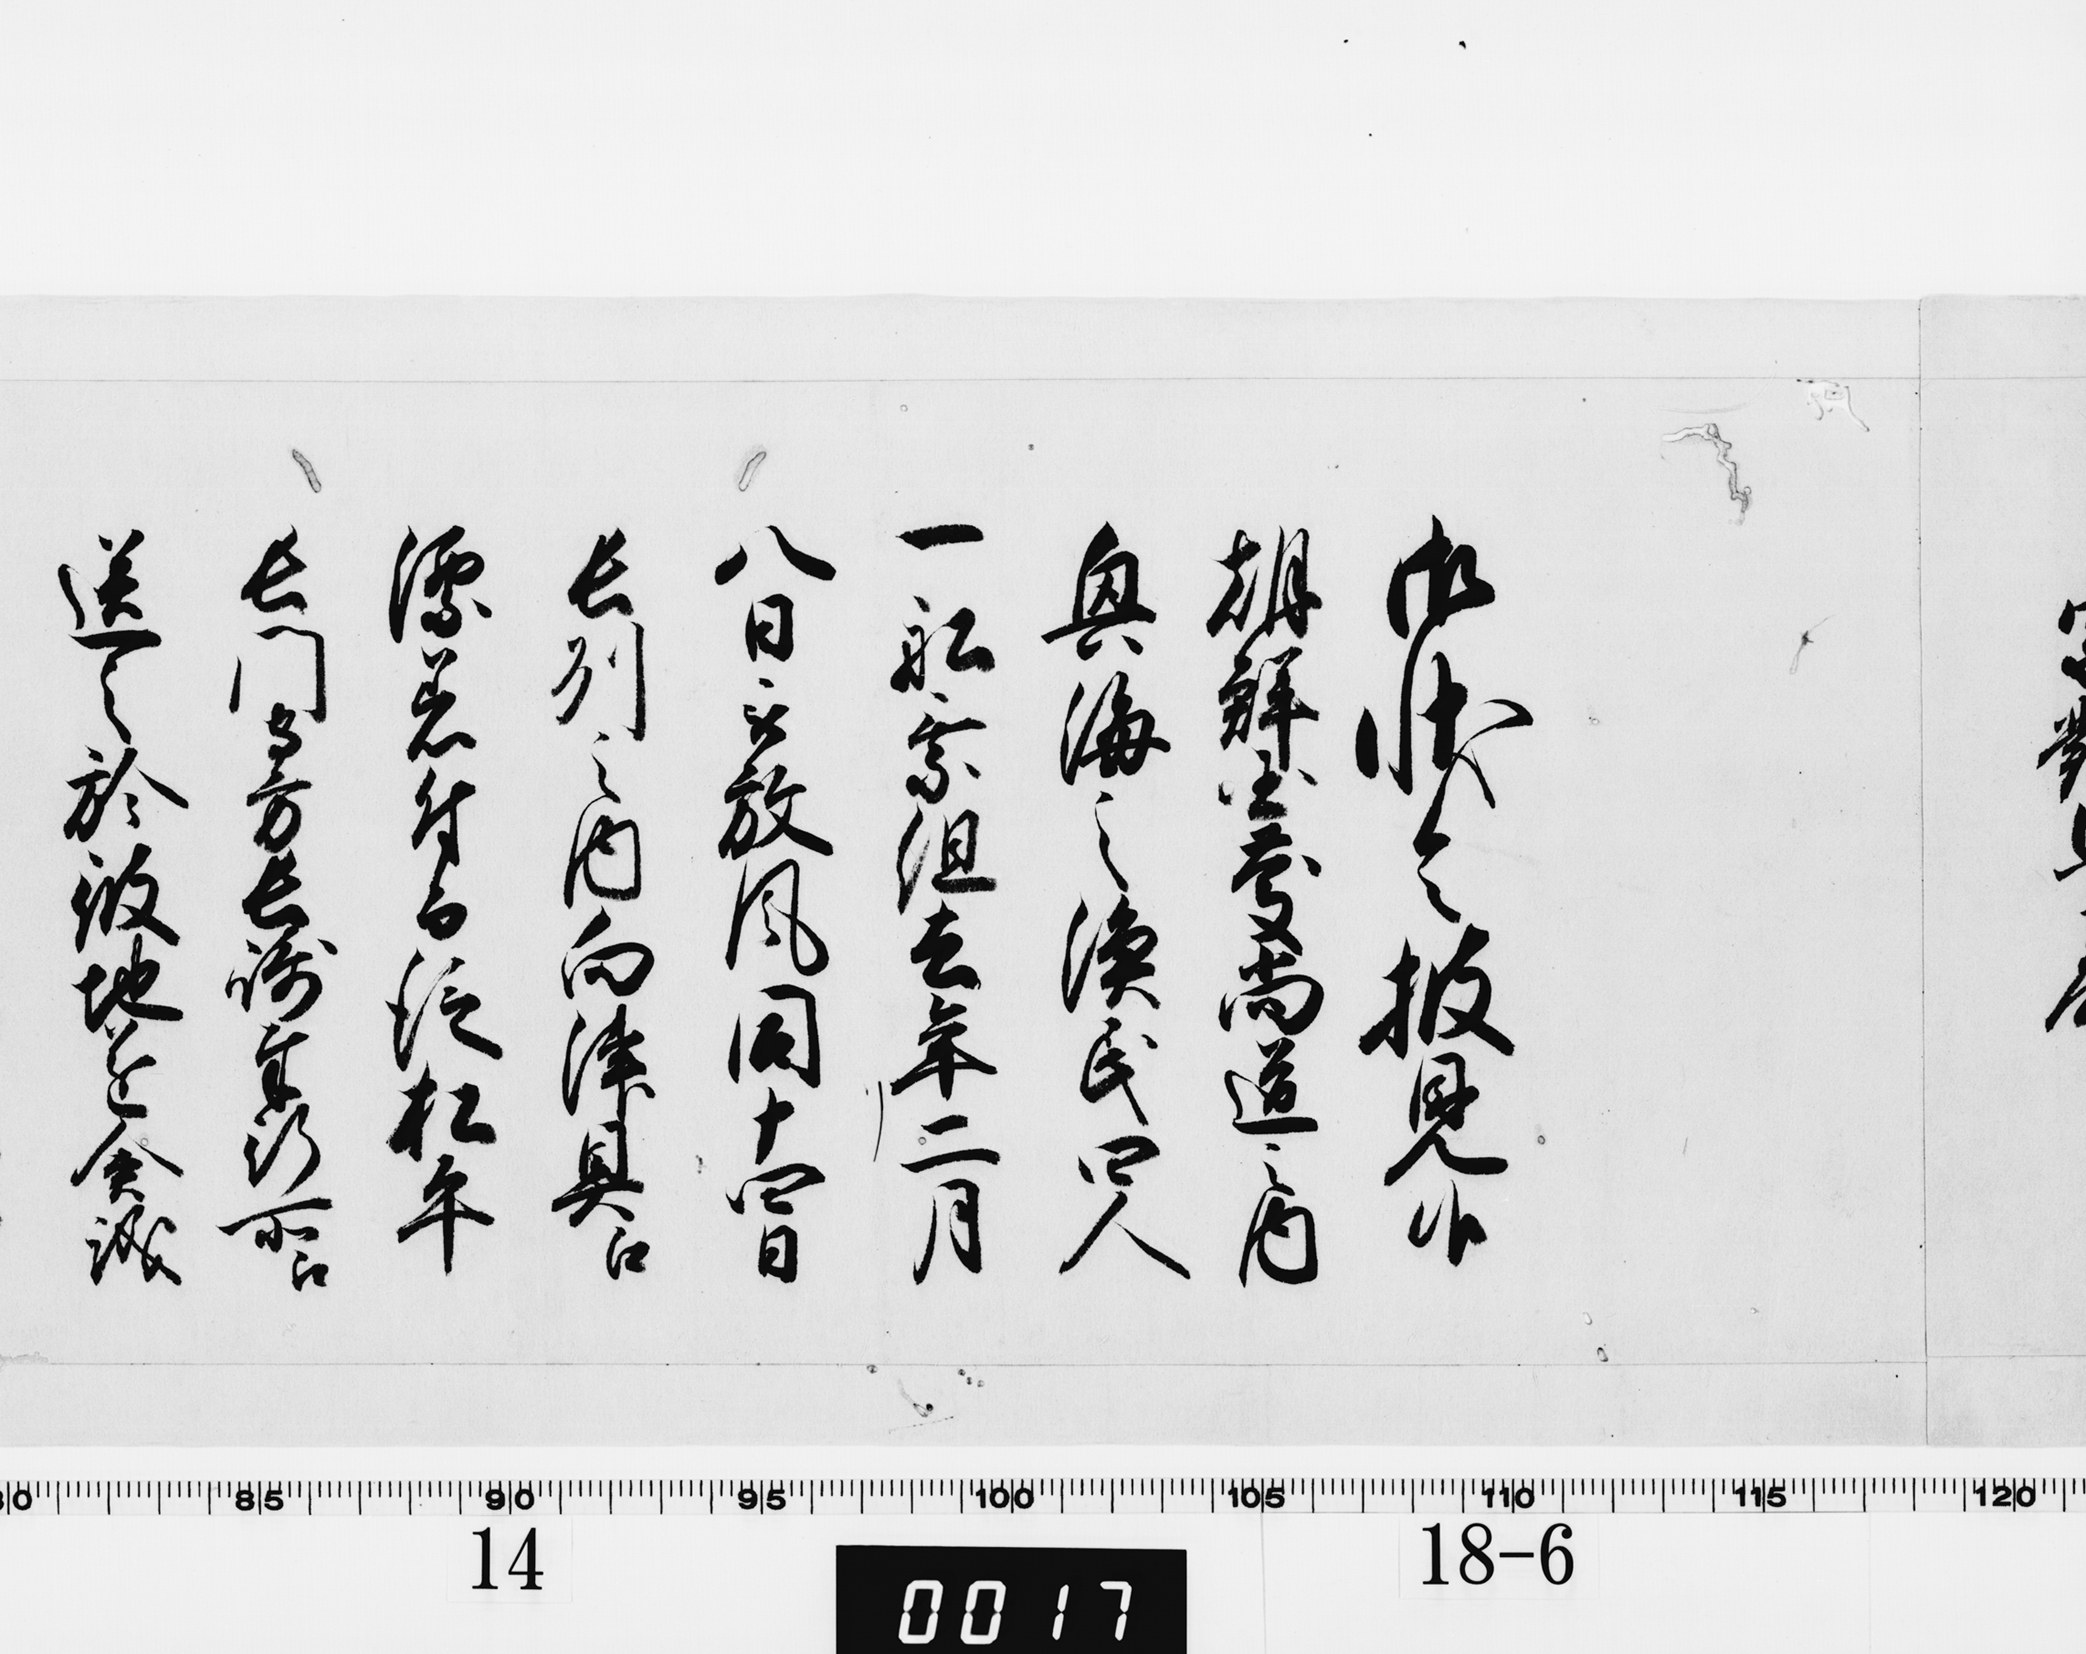 御状令披見候
朝鮮国慶尚道之内
興海之漁民四人
一船乗組去年二月
八日被放風同十四日
長州之内向津具江
漂着付而従松平
長門守方長崎奉行所江
送之於彼地遂僉議
85 90 95 100 105 110 115 120
14
18-6
0017